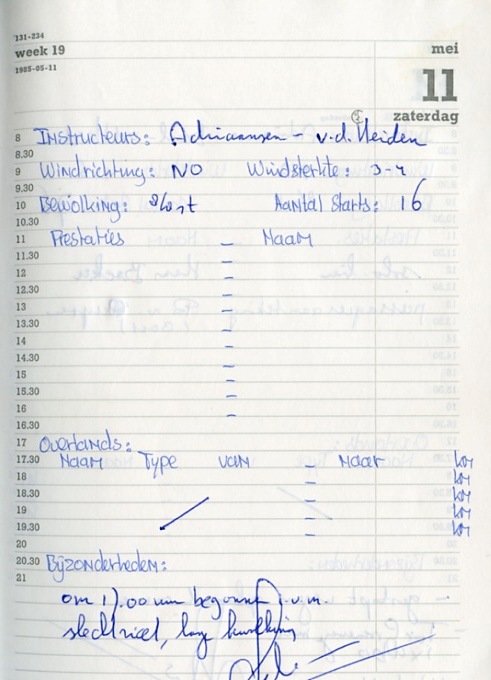 131-234
week 19
mei
1985-05-11
11
zaterdag
8 Instructeurs: Adriaansen - v.d. Heiden
8.30
9 Windrichting: NO Windsterkte: 3-4
9.30
10 Bewolking: Aantal Starts: 16
10.30
11 Prestaties - Naam
11.30 -
12 -
12.30 -
13 -
13.30 -
14 -
14.30 -
15 -
15.30 -
16 -
16.30
17 Overlands:
17.30 Naam Type van - Naar km
18 - km
18.30 - km
19 - km
19.30 - km
20
20.30 Bijzonderheden:
21
om .00 uur begonnen i.v.m.
slecht